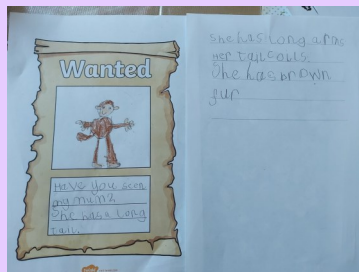 Wanted
Have you seen
my mum?
She has a long
tail.
She has long arms
Her tail coils.
She has brown
fur